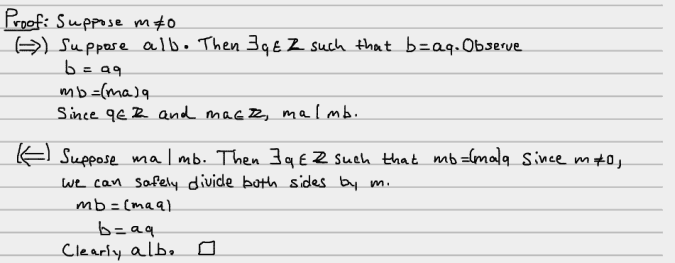 Proof: Suppose m≠0
(⇒) Suppose a|b. Then ∃q∈ℤ such that b=aq. Observe
b = aq
mb=(ma)q
Since q∈ℤ and ma∈ℤ, ma|mb.
(⇐) Suppose ma|mb. Then ∃q∈ℤ such that mb=(ma)q Since m≠0,
we can safely divide both sides by m.
mb=(maq)
b=aq
Clearly a|b. □